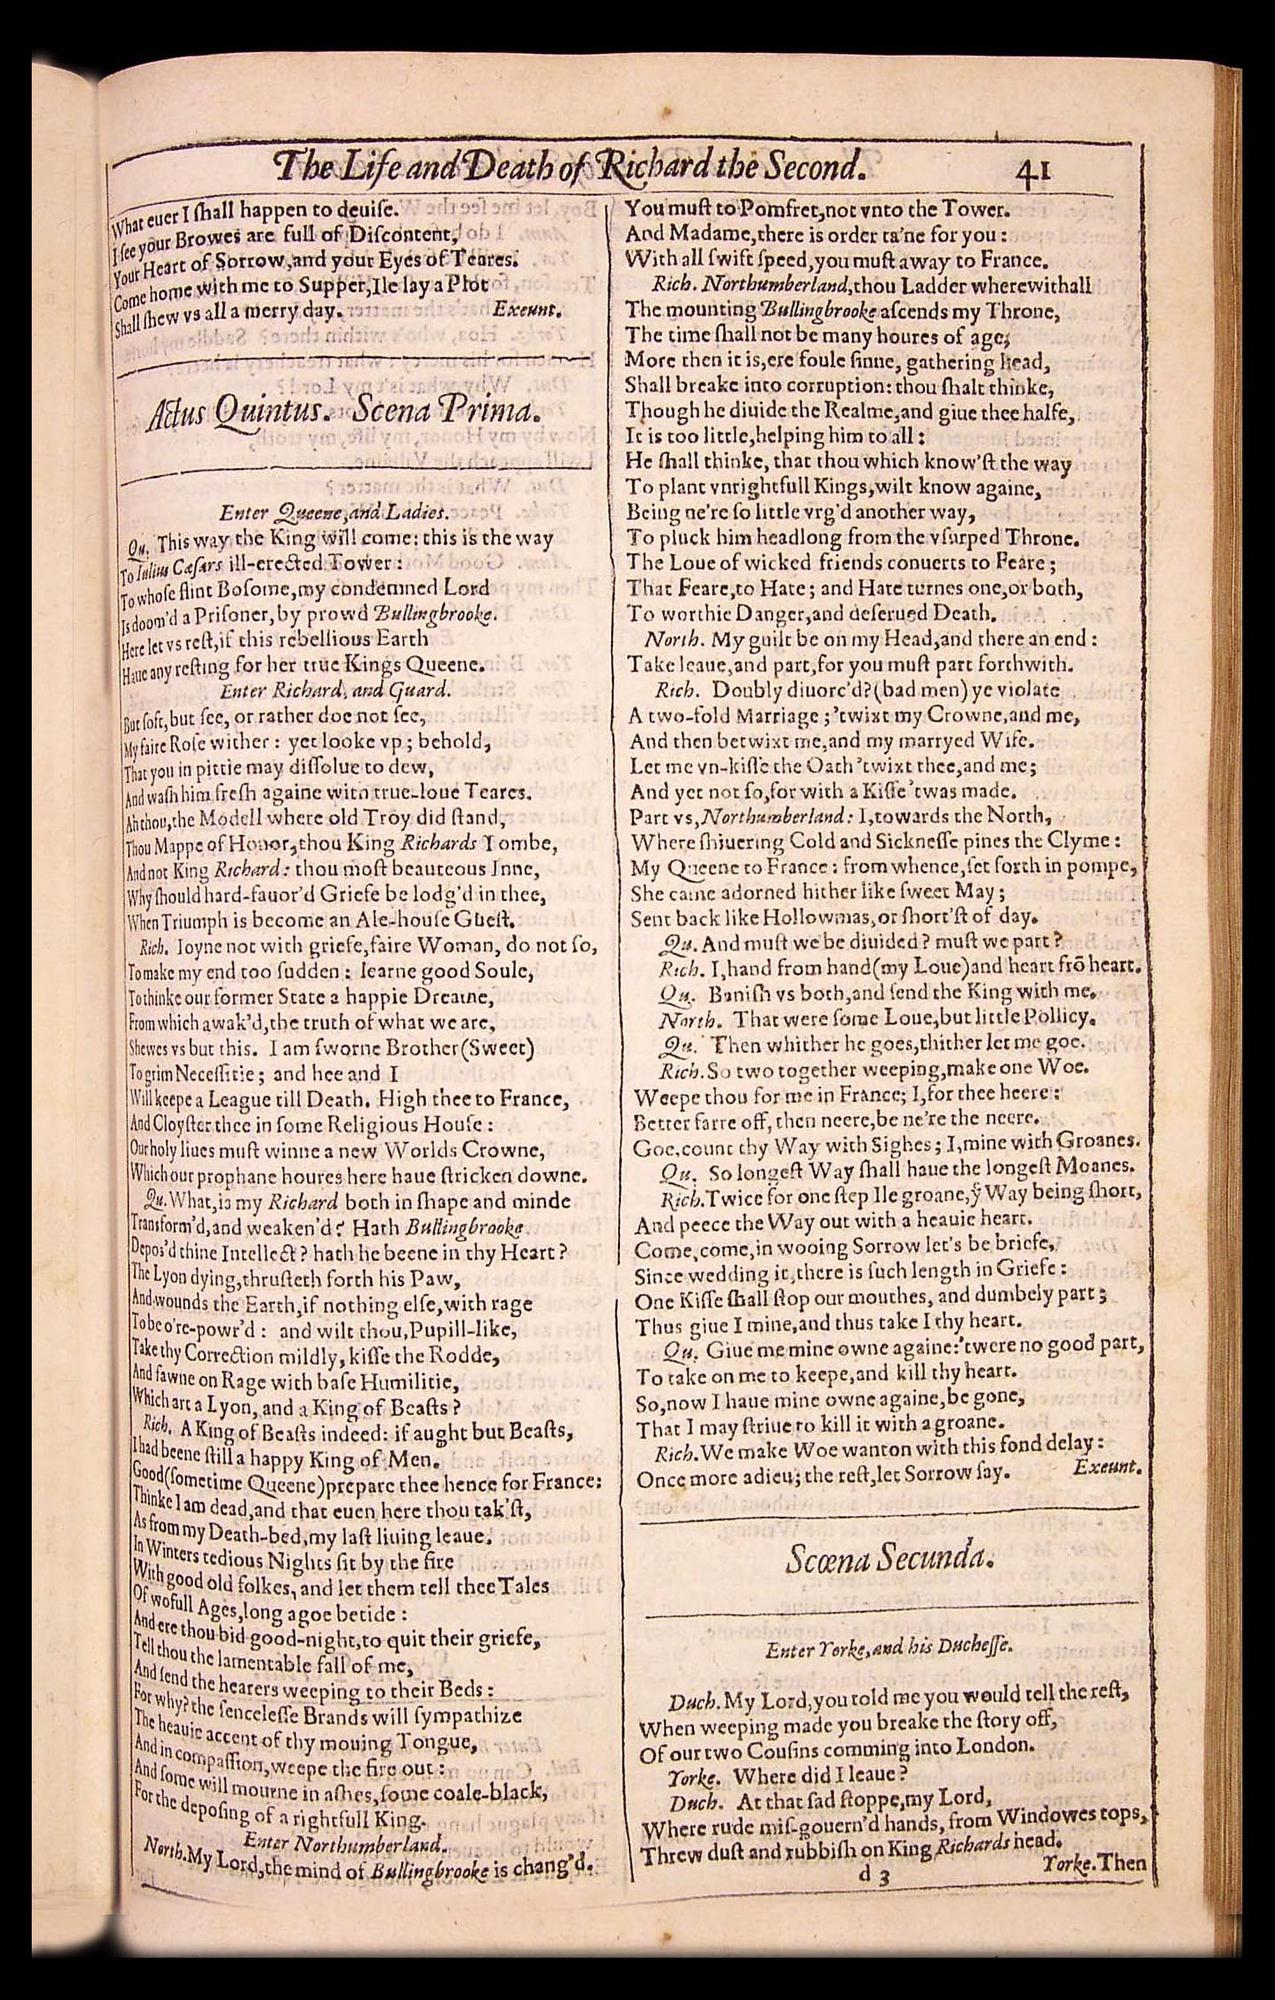 The Life and Death of Richard the Second. 41
What euer I shall happen to deuise.
I see your Browes are full of Discontent,
Your Heart of Sorrow,and your Eyes of Teares.
Come home with me to Supper,Ile lay a Plot
Shall shew vs all a merry day. Exeunt.
Actus Quintus. Scena Prima.
Enter Queene,and Ladies.
Qu. This way the King will come: this is the way
To Iulius Cæsars ill-erected Tower:
To whose flint Bosome,my condemned Lord
Is doom'd a Prisoner,by prowd Bullingbrooke.
Here let vs rest,if this rebellious Earth
Haue any resting for her true Kings Queene.
Enter Richard, and Guard.
But soft,but see, or rather doe not see,
My faire Rose wither: yet looke vp; behold,
That you in pittie may dissolue to dew,
And wash him fresh againe with true-loue Teares.
Ah thou,the Modell where old Troy did stand,
Thou Mappe of Honor,thou King Richards Tombe,
And not King Richard: thou most beauteous Inne,
Why should hard-fauor'd Griefe be lodg'd in thee,
When Triumph is become an Ale-house Guest.
Rich. Ioyne not with griefe,faire Woman, do not so,
To make my end too sudden: learne good Soule,
To thinke our former State a happie Dreame,
From which awak'd,the truth of what we are,
Shewes vs but this. I am sworne Brother(Sweet)
To grim Necessitie; and hee and I
Will keepe a League till Death. High thee to France,
And Cloyster thee in some Religious House:
Our holy liues must winne a new Worlds Crowne,
Which our prophane houres here haue stricken downe.
Qu. What,is my Richard both in shape and minde
Transform'd,and weaken'd? Hath Bullingbrooke
Depos'd thine Intellect? hath he beene in thy Heart?
The Lyon dying,thrusteth forth his Paw,
And wounds the Earth,if nothing else,with rage
To be o're-powr'd: and wilt thou,Pupill-like,
Take thy Correction mildly,kisse the Rodde,
And fawne on Rage with base Humilitie,
Which art a Lyon, and a King of Beasts?
Rich. A King of Beasts indeed: if aught but Beasts,
I had beene still a happy King of Men.
Good(sometime Queene)prepare thee hence for France:
Thinke I am dead,and that euen here thou tak'st,
As from my Death-bed,my last liuing leaue.
In Winters tedious Nights sit by the fire
With good old folkes, and let them tell thee Tales
Of wofull Ages,long agoe betide:
And ere thou bid good-night,to quit their griefe,
Tell thou the lamentable fall of me,
And send the hearers weeping to their Beds:
For why? the sencelesse Brands will sympathize
The heauie accent of thy mouing Tongue,
And in compassion,weepe the fire out:
And some will mourne in ashes,some coale-black,
For the deposing of a rightfull King.
Enter Northumberland.
North. My Lord,the mind of Bullingbrooke is chang'd.
You must to Pomfret,not vnto the Tower.
And Madame,there is order ta'ne for you:
With all swift speed,you must away to France.
Rich. Northumberland,thou Ladder wherewithall
The mounting Bullingbrooke ascends my Throne,
The time shall not be many houres of age,
More then it is,ere foule sinne, gathering head,
Shall breake into corruption: thou shalt thinke,
Though he diuide the Realme,and giue thee halfe,
It is too little,helping him to all:
He shall thinke, that thou which know'st the way
To plant vnrightfull Kings,wilt know againe,
Being ne're so little vrg'd another way,
To pluck him headlong from the vsurped Throne.
The Loue of wicked friends conuerts to Feare;
That Feare,to Hate; and Hate turnes one,or both,
To worthie Danger,and deserued Death.
North. My guilt be on my Head,and there an end:
Take leaue,and part,for you must part forthwith.
Rich. Doubly diuorc'd?(bad men) ye violate
A two-fold Marriage; 'twixt my Crowne,and me,
And then betwixt me,and my marryed Wife.
Let me vn-kisse the Oath 'twixt thee,and me;
And yet not so,for with a Kisse 'twas made.
Part vs,Northumberland: I,towards the North,
Where shiuering Cold and Sicknesse pines the Clyme:
My Queene to France: from whence,set forth in pompe,
She came adorned hither like sweet May;
Sent back like Hollowmas,or short'st of day.
Qu. And must we be diuided? must we part?
Rich. I,hand from hand(my Loue)and heart frõ heart.
Qu. Banish vs both,and send the King with me.
North. That were some Loue,but little Pollicy.
Qu. Then whither he goes,thither let me goe.
Rich. So two together weeping,make one Woe.
Weepe thou for me in France; I,for thee heere:
Better farre off, then neere,be ne're the neere.
Goe,count thy Way with Sighes; I,mine with Groanes.
Qu. So longest Way shall haue the longest Moanes.
Rich. Twice for one step Ile groane,ỹ Way being short,
And peece the Way out with a heauie heart.
Come,come,in wooing Sorrow let's be briefe,
Since wedding it,there is such length in Griefe:
One Kisse shall stop our mouthes, and dumbely part;
Thus giue I mine,and thus take I thy heart.
Qu. Giue me mine owne againe:'twere no good part,
To take on me to keepe,and kill thy heart.
So,now I haue mine owne againe,be gone,
That I may striue to kill it with a groane.
Rich. We make Woe wanton with this fond delay:
Once more adieu; the rest,let Sorrow say. Exeunt.
Scœna Secunda.
Enter Yorke,and his Duchesse.
Duch. My Lord,you told me you would tell the rest,
When weeping made you breake the story off,
Of our two Cousins comming into London.
Yorke. Where did I leaue?
Duch. At that sad stoppe,my Lord,
Where rude mis-gouern'd hands, from Windowes tops,
Threw dust and rubbish on King Richards head.
d 3 Yorke. Then